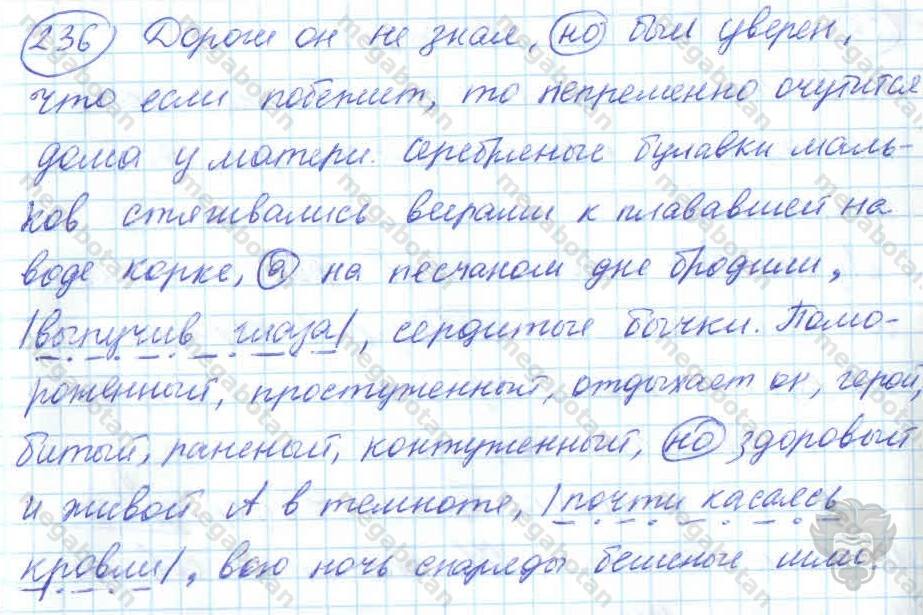 236 Дороги он не знал, но был уверен,
что если побежит, то непременно очутится
дома у матери. Серебряные булавки маль-
ков стягивались веерами к плававшей на
воде корке, а на песчаном дне бродили,
|выпучив глаза|, сердитые бычки. Помо-
роженный, простуженный, отдыхает он, герой,
битый, раненый, контуженный, но здоровый
и живой А в темноте, |почти касаясь
кровли|, всю ночь снаряды бешеные шли.
megabotan